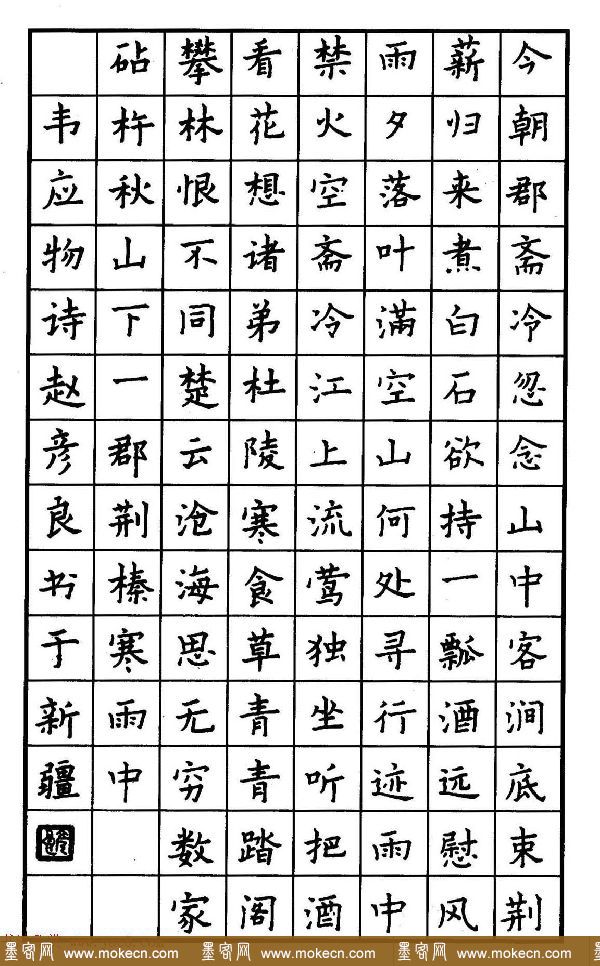 今朝郡斋冷忽念山中客涧底束荆
薪归来煮白石欲持一瓢酒远慰风
雨夕落叶满空山何处寻行迹雨中
禁火空斋冷江上流莺独坐听把酒
看花想诸弟杜陵寒食草青青踏阁
攀林恨不同楚云沧海思无穷数家
砧杵秋山下一郡荆榛寒雨中
韦应物诗赵彦良书于新疆
墨客网 www.mokecn.com 墨客网 www.mokecn.com 墨客网 www.mokecn.com